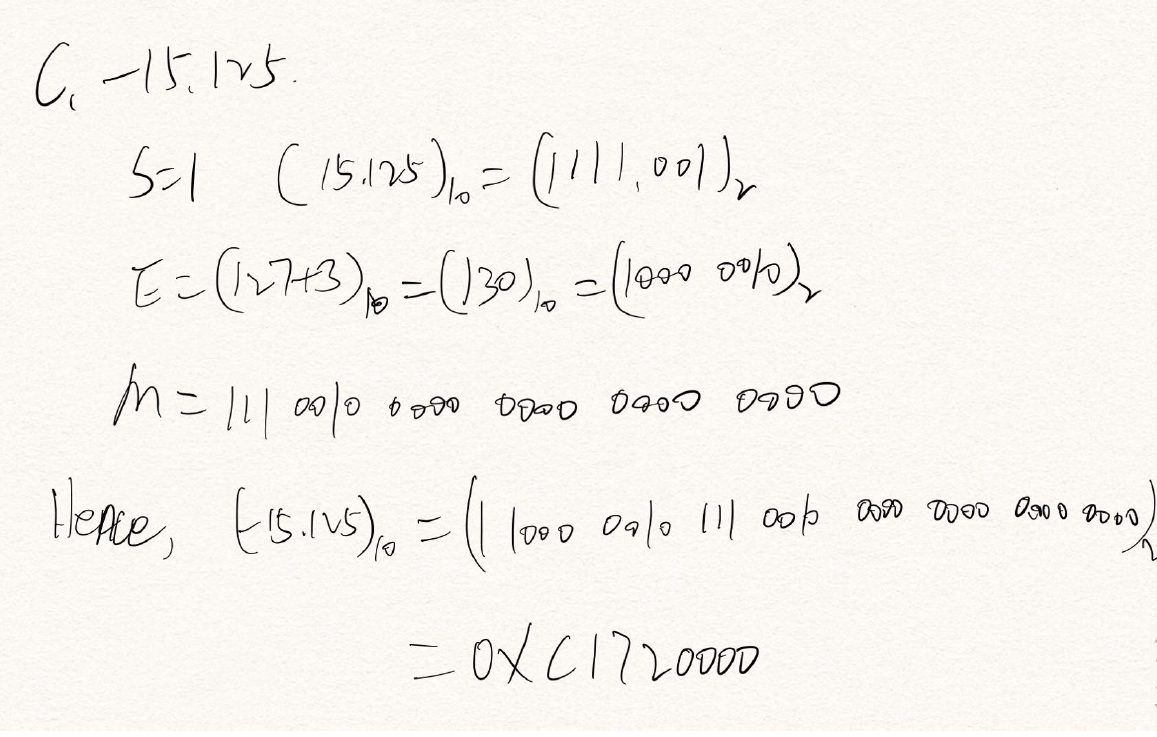 C. -15.125.
S=1 (15.125)₁₀ = (1111.001)₂
E = (127+3)₁₀ = (130)₁₀ = (1000 0010)₂
M = 111 0010 0000 0000 0000 0000
Hence, (-15.125)₁₀ = (1 1000 0010 111 0010 0000 0000 0000 0000)₂
= 0XC1720000